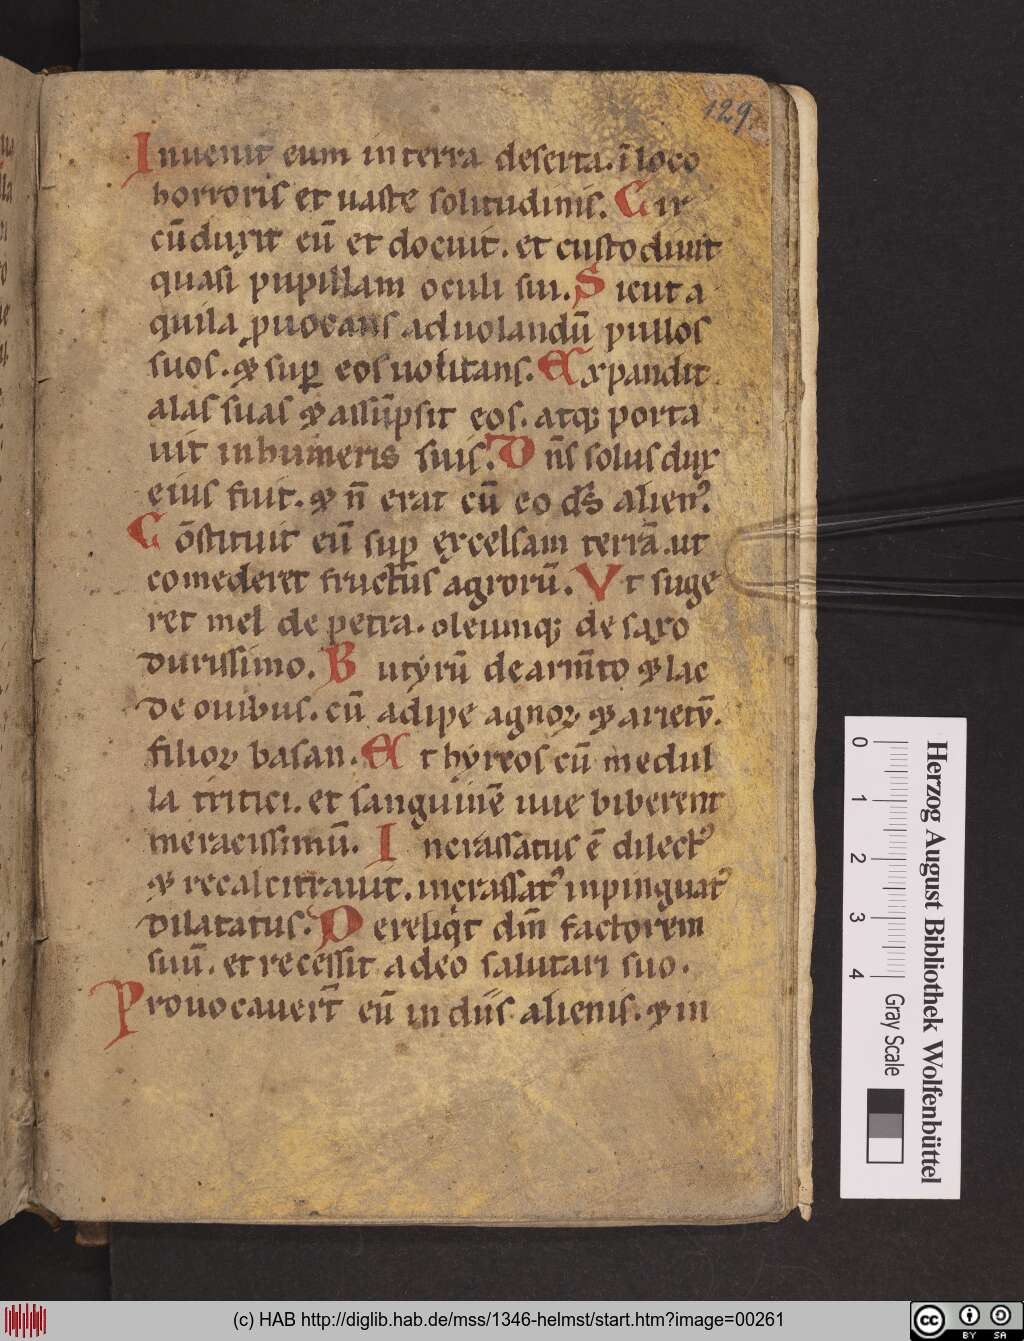 129.
Inuenit eum in terra deserta. ī loco
horroris et uaste solitudinis. Cir
cūduxit eū et docuit. et custodiuit
quasi pupillam oculi sui. Sicut a
quila ꝓuocans ad uolandū pullos
suos. ⁊ suꝑ eos uolitans. Expandit
alas suas ⁊ assūpsit eos. atqꝫ porta
uit in humeris suis. Dn̄s solus dux
eius fuit. ⁊ n̄ erat cū eo ds̄ alienꝰ.
Cōstituit eū suꝑ excelsam terrā. ut
comederet fructūs agrorū. Vt suge
ret mel de petra. oleumqꝫ de saxo
durissimo. Butyrū de arm̄to ⁊ lac
de ouibus. cū adipe agnoꝝ ⁊ arietū.
filioꝝ basan. Et hyrcos cū medul
la tritici. et sanguinē uuę biberent
meracissimū. Incrassatus ē dilectꝰ
⁊ recalcitrauit. incrassatꝰ inpinguatꝰ
dilatatus. Dereliq̇t dm̄ factorem
suū. et recessit a deo salutari suo.
Prouocauert̄ eū in diis alienis. ⁊ in
0 1 2 3 4
Gray Scale
Herzog August Bibliothek Wolfenbüttel
(c) HAB http://diglib.hab.de/mss/1346-helmst/start.htm?image=00261
cc
BY SA